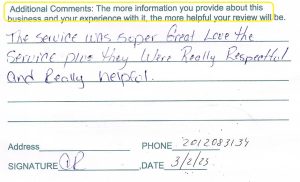 Additional Comments: The more information you provide about this
business and your experience with it, the more helpful your review will be.
The service was super Great Love the
Service plus they Were Really Respectful
and Really helpful.
Address
PHONE 2012083134
SIGNATURE
,DATE 3/2/23